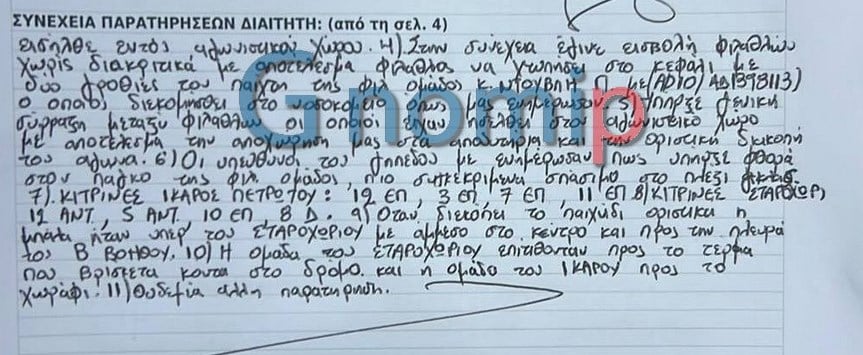 ΣΥΝΕΧΕΙΑ ΠΑΡΑΤΗΡΗΣΕΩΝ ΔΙΑΙΤΗΤΗ: (από τη σελ. 4)
εισήλθε εντός αγωνιστικού χώρου. 4) Στην συνέχεια έγινε εισβολή φιλάθλων
χωρίς διακριτικά με αποτέλεσμα φίλαθλος να χτυπήσει στο κεφάλι με
δύο γροθιές τον παίχτη της φιλ ομάδος κ. Π με (ΑΡ10/ΑΔ1398113)
ο οποίος διεκομήσθει στο νοσοκομείο όπως μας ενημέρωσαν 5) Υπήρξε γενική
σύρραξη μεταξύ φιλάθλων οι οποίοι έχαν ησέλθει στον αγωνιστικό χώρο
με αποτέλεσμα την αποχώρηση μας στα αποδυτήρια και την οριστική διακοπή
του αγώνα. 6) Οι υπεύθυνοι του γηπέδου με ενημέρωσαν πως υπήρξε φθορά
στον πάγκο της φιλ ομάδος, πιο συγκεκριμένα σπάσιμο στο πλέξι
7) ΚΙΤΡΙΝΕΣ ΙΚΑΡΟΣ ΠΕΤΡΩΤΟΥ: 12 ΕΠ, 3 ΕΠ, 7 ΕΠ, 11 ΕΠ 8) ΚΙΤΡΙΝΕΣ ΣΤΑΡΟΧΩΡ
12 ΑΝΤ, 5 ΑΝΤ, 10 ΕΠ, 8 Δ. 9) Όταν διεκόπει το παιχνίδι οριστικα η
μπάλα ήταν υπέρ του ΣΤΑΡΟΧΩΡΙΟΥ με άμμεσο στο κέντρο και προς την πλευρά
του Β ΒΟΗΘΟΥ. 10) Η ομάδα του ΣΤΑΡΟΧΩΡΙΟΥ επιτίθονταν προς το τέρμα
που βρίσκεται κοντά στο δρόμο και η ομάδα του ΙΚΑΡΟΥ προς το
χωράφι. 11) Ουδεμία άλλη παρατήρηση.
Gnomip